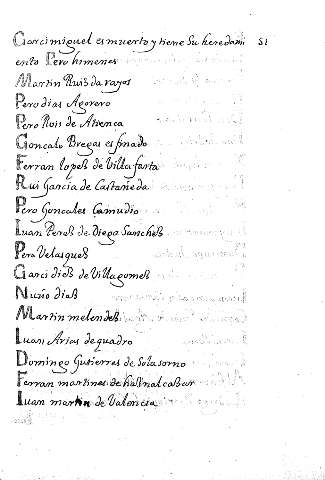 Garci miguel es muerto y tiene su heredami
ento Pero himenes
Martin Ruis da rayos
Pero dias Agorero
Pero Rois de Atienca
Goncalo Bregas es finado
Ferran lopes de Villa farta
Rui Garcia de Castañeda
Pero Goncales Camudio
Iuan Peres de Diego Sanches
Pero Velasques
Garci dies de Villagomes
Nuño dias
Martin melendes
Iuan Arias de quadro
Domingo Gutierres de Solasorno
Ferran martines de
Iuan martin de Valencia